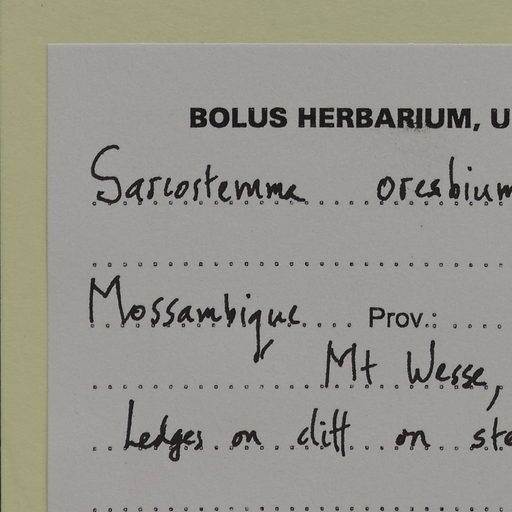 BOLUS HERBARIUM, U
Sarcostemma oresbium
Mossambique Prov.:
Mt Wesse,
Ledges on cliff on ste